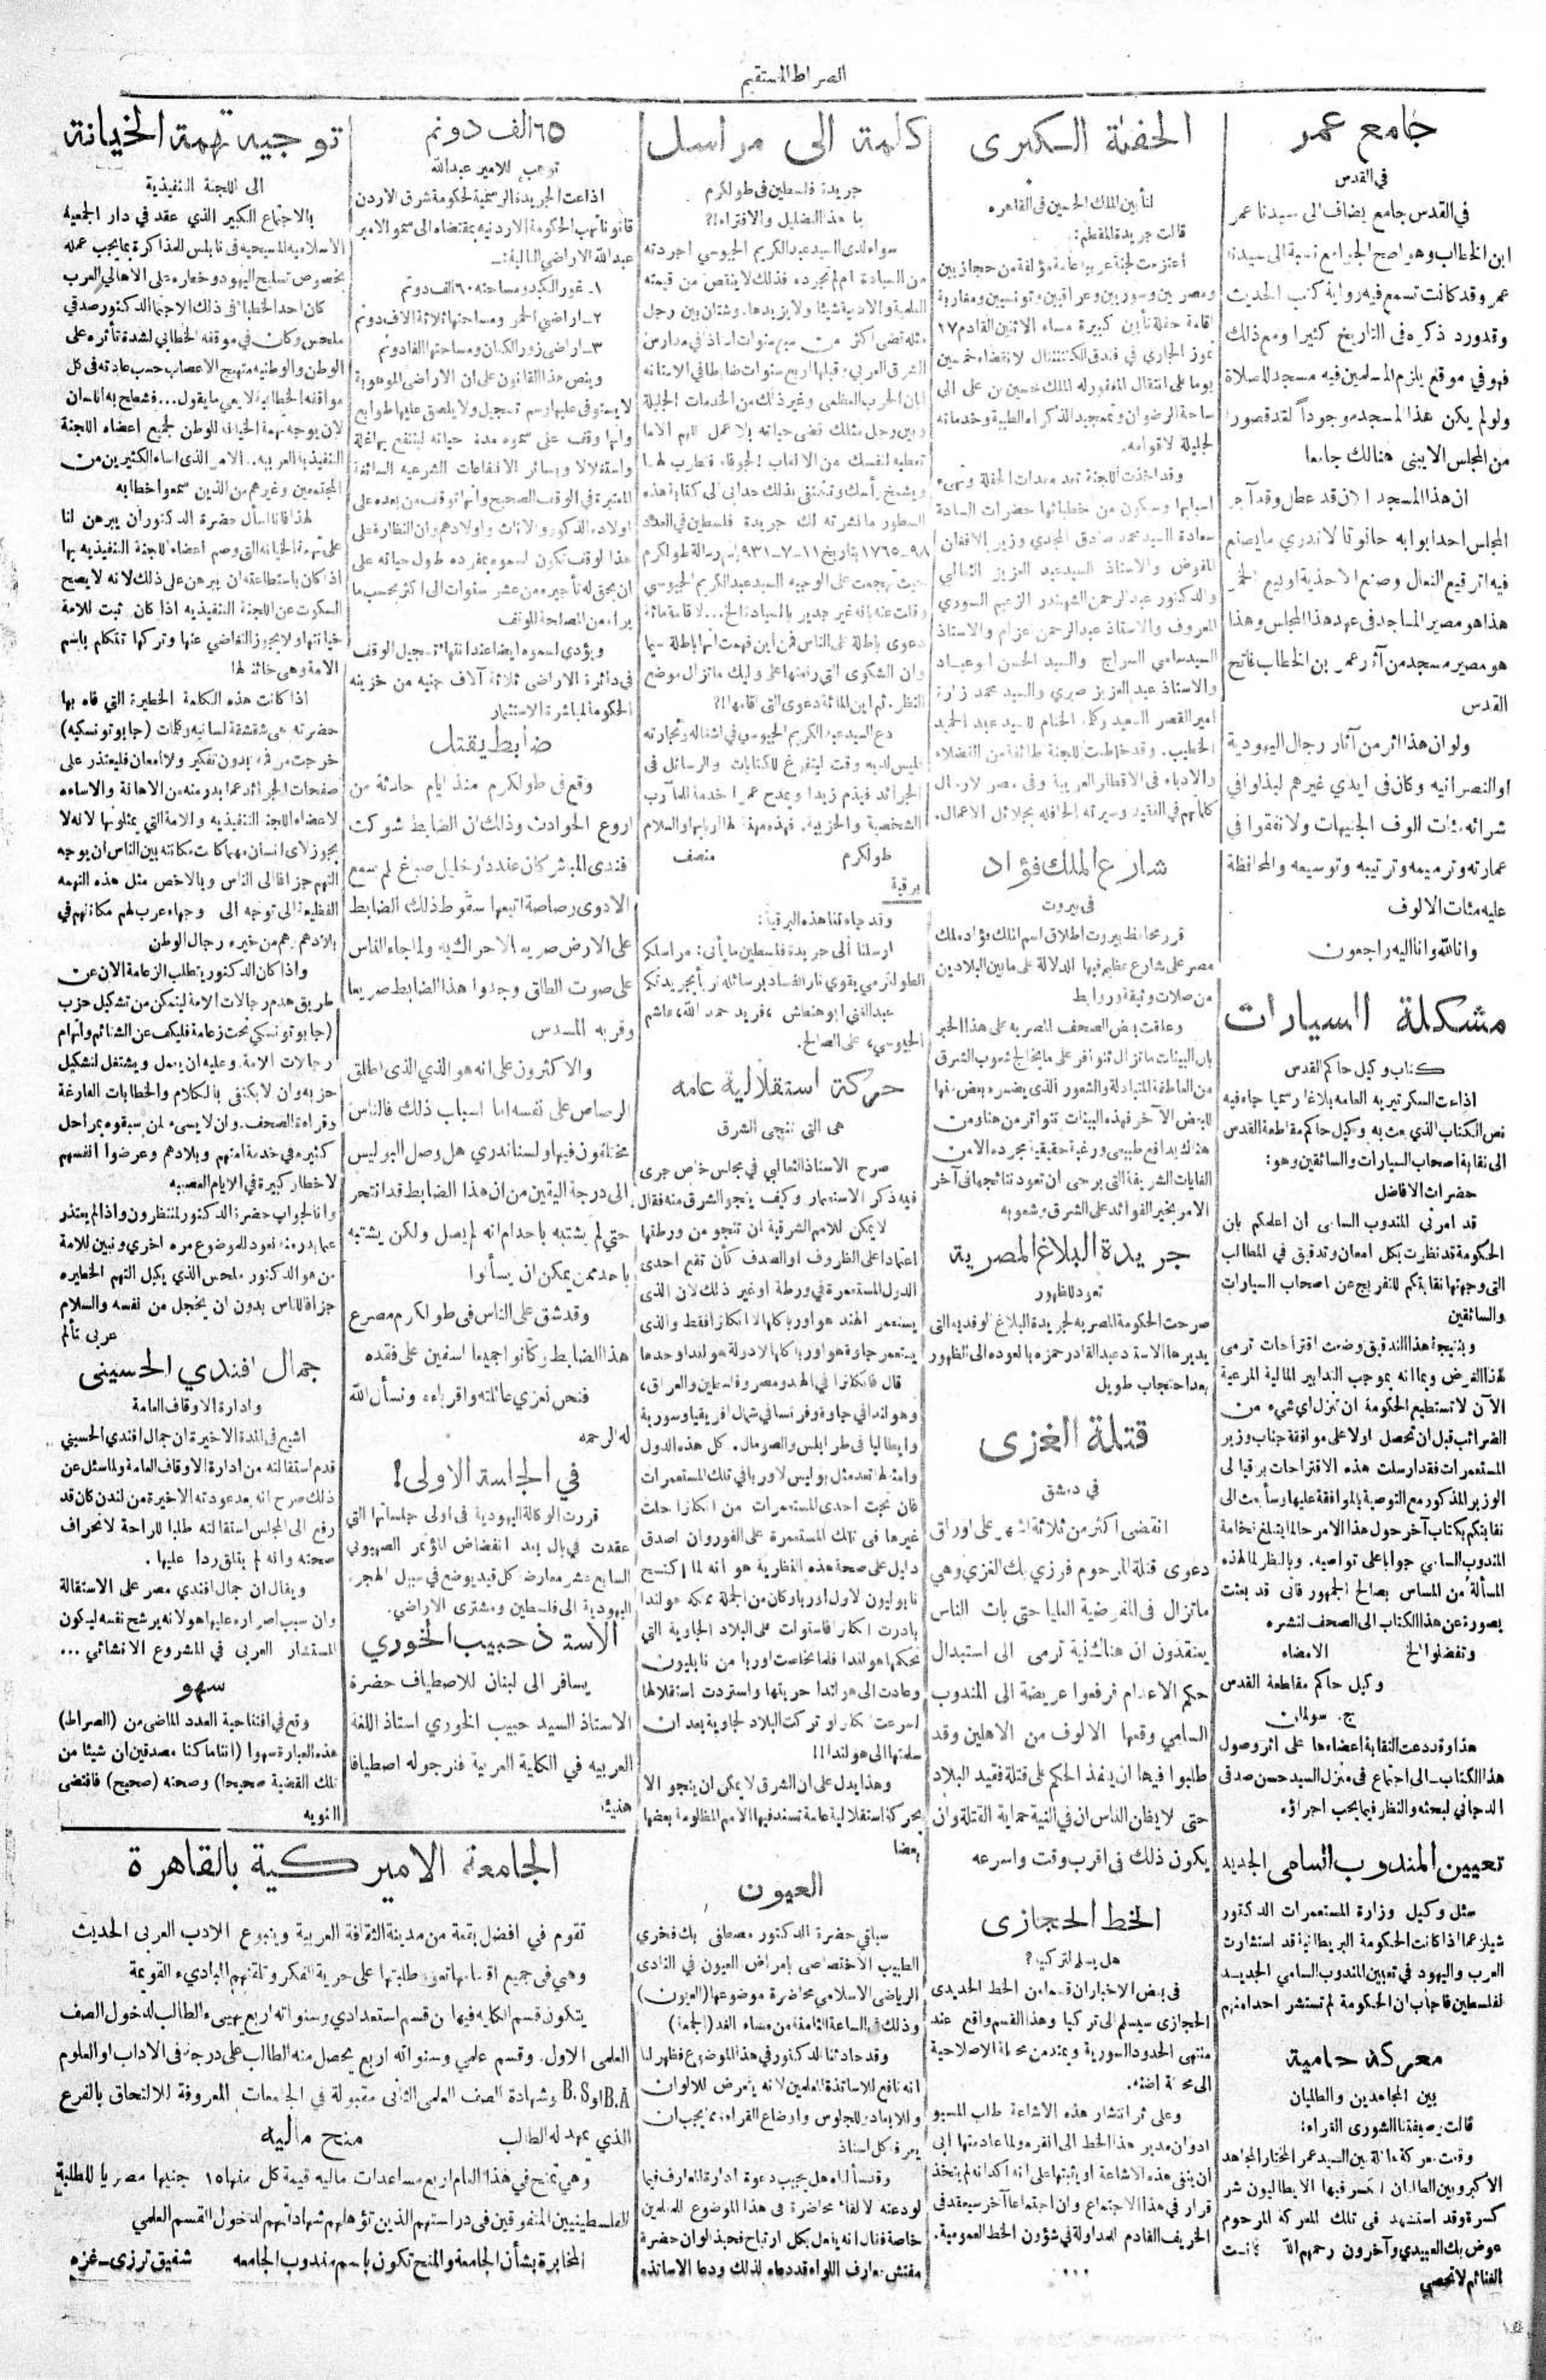 الصراط المستقيم
جامع عمر
في القدس
في القدس جامع يضاف الى سيدنا عمر
ابن الخطاب وهو اصح الجوامع نسبة الى سيدنا
عمر وقد كانت تسمع فيه رواية كتب الحديث
وقد ورد ذكره في التاريخ كثيرا ومع ذلك
فهو في موقع يلزم المسلمين فيه مسجد للصلاة
ولو لم يكن هذا المسجد موجوداً لقد قصور
من المجلس الا يبنى هنالك جامعا
ان هذا المسجد الان قد عطل وقد آجر
المجلس احد ابوابه حانوتا لا ندري ما يصنع
فيه اترقيع النعال وصنع الاحذية او بيع الخمر
هذا هو مصير المساجد في عهد هذا المجلس وهذا
هو مصير مسجد من آثار عمر بن الخطاب فاتح
القدس
ولو ان هذا اثر من آثار رجال اليهودية
او النصرانيه وكان في ايدي غيرهم لبذلوا في
شرائه مئات الوف الجنيهات ولانفقوا في
عمارته وترميمه وترتيبه وتوسيعه والمحافظة
عليه مئات الالوف
وانا لله وانا اليه راجعون
مشكلة السيارات
كتاب وكيل حاكم القدس
اذاعت السكرتيريه العامه بلاغا رسميا جاء فيه
نص الكتاب الذي بعث به وكيل حاكم مقاطعة القدس
الى نقابة اصحاب السيارات والسائقين وهو:
حضرات الافاضل
قد امرني المندوب السامي ان اعلمكم بان
الحكومة قد نظرت بكل امعان وتدقيق في المطالب
التي وجهتها نقابتكم للتفريج عن اصحاب السيارات
والسائقين
وبنتيجة هذا التدقيق وضعت اقتراحات ترمى
لهذا الغرض وبما انه بموجب التدابير المالية المرعية
الآن لا تستطيع الحكومة ان تنزل اي شيء من
الضرائب قبل ان تحصل اولا على موافقة جناب وزير
المستعمرات فقد ارسلت هذه الاقتراحات برقيا لى
الوزير المذكور مع التوصية بالموافقة عليها وسأبعث الى
نقابتكم بكتاب آخر حول هذا الامر حالما يتبلغ فخامة
المندوب السامي جوابا على تواصيه. وبالنظر لما لهذه
المسألة من المساس بصالح الجمهور فانى قد بعثت
بصورة عن هذا الكتاب الى الصحف لنشره
وتفضلوا الخ الامضاء
وكيل حاكم مقاطعة القدس
ج. سولمان
هذا وقد دعت النقابة اعضاءها على اثر وصول
هذا الكتاب ـ الى اجتماع في منزل السيد حسن صدقى
الدجاني لبحثه والنظر فيما يجب اجراؤه
تعيين المندوب السامى الجديد
سئل وكيل وزارة المستعمرات الدكتور
شيلز عما اذا كانت الحكومة البريطانية قد استشارت
العرب واليهود في تعيين المندوب السامي الجديد
لفلسطين فاجاب ان الحكومة لم تستشر احدا منهم
معركة حامية
بين المجاهدين والطليان
قالت رصيفتنا الشورى الغراء:
وقعت معركة هائلة بين السيد عمر المختار المجاهد
الاكبر وبين الطليان انكسر فيها الايطاليون شر
كسرة وقد استشهد في تلك المعركة المرحوم
عوض بك العبيدي وآخرون رحمهم الله كانت
الغنائم لا تحصي
الحفلة الكبرى
لتأبين الملك الحسين في القاهره
قالت جريدة المقطم:
اعتزمت لجنة عربية عامة مؤلفة من حجازيين
ومصريين وسوريين وعراقيين وتونسيين ومغاربة
اقامة حفلة تأبين كبيرة مساء الاثنين القادم ١٧
تموز الجاري في فندق الكنتننتال لانقضاء خمسين
يوما على انتقال المغفور له الملك حسين بن على الى
ساحة الرضوان وتمجيد الذكراه الطيبة وخدماته
الجليلة لاقوامه.
وقد اخذت اللجنة تعد معدات الحفلة وتهيء
اسبابها وسيكون من خطبائها حضرات السادة
سعادة السيد محمد صادق المجدي وزير الافغان
المفوض والاستاذ السيد عبد العزيز الثعالبي
والدكتور عبد الرحمن الشهبندر الزعيم السوري
المعروف والاستاذ عبد الرحمن عزام والاستاذ
السيد سامي السراج والسيد الحسن ابو عياد
والاستاذ عبد العزيز صبري والسيد محمد زارة
امير القصر السعيد وكلمة الختام للسيد عبد الحميد
الخطيب. وقد خاطبت اللجنة طائفة من الفضلاء
والادباء في الاقطار العربية وفى مصر لارسال
كلماتهم في الفقيد وسيرته الحافله بجلائل الاعمال.
شارع الملك فؤاد
في بيروت
قرر محافظ بيروت اطلاق اسم الملك فؤاد ملك
مصر على شارع عظيم فيها للدلالة على ما بين البلادين
من صلات وثيقة وروابط
وعلقت بعض الصحف المصريه على هذا الخبر
بان البينات ما تزال تتوافر على ما يخالج شعوب الشرق
من العاطفة المتبادلة والشعور الذي يضمره بعضها
للبعض الآخر فهذه البينات تتواتر من هنا ومن
هناك بدافع طبيعي ورغبة حقيقية مجرده الا من
الغايات الشريفة التي يرجى ان تعود نتائجها في آخر
الامر بخير الفوائد على الشرق وشعوبه
جريدة البلاغ المصرية
تعود للظهور
صرحت الحكومة المصريه لجريدة البلاغ الوفديه التى
يديرها الاستاذ عبد القادر حمزه بالعوده الى الظهور
بعد احتجاب طويل
قتلة الغزى
في دمشق
انقضى اكثر من ثلاثة اشهر على اوراق
دعوى قتلة المرحوم فوزي بك الغزي وهي
ما تزال في المفوضية العليا حتى بات الناس
يعتقدون ان هناك نية ترمى الى استبدال
حكم الاعدام فرفعوا عريضة الى المندوب
السامي وقعها الالوف من الاهلين وقد
طلبوا فيها ان ينفذ الحكم على قتلة فقيد البلاد
حتى لا يظن الناس ان في النية حماية القتلة وان
يكون ذلك في اقرب وقت واسرعه
الخط الحجازى
هل يسلم لتركيا؟
في بعض الاخبار ان قسما من الخط الحديدى
الحجازى سيسلم الى تركيا وهذا القسم واقع عند
منتهى الحدود السورية ويمتد من محطة الاصلاحية
الى محطة اضنه.
وعلى اثر انتشار هذه الاشاعة طلب المسيو
ادوان مدير هذا الخط الى انقره ولما عاد منها ابى
ان ينفي هذه الاشاعة او يثبتها على انه اكد انه لم يتخذ
قرار في هذا الاجتماع وان اجتماعا آخر سيعقد في
الخريف القادم للمداولة في شؤون الخط العمومية.
• • •
كلمة الى مراسل
جريدة فلسطين في طولكرم
ما هذا التضليل والافتراء!؟
سواء لدى السيد عبد الكريم الجيوسي اجردته
من السيادة ام لم تجرده فذلك لا ينقص من قيمته
العلمية والادبية شيئا ولا يزيدها، وشتان بين رجل
مثله قضى اكثر من سبع سنوات استاذ في مدارس
الشرق العربي، وقبلها اربع سنوات ضابطا في الاستانه
ابان الحرب العظمى وغير ذلك من الخدمات الجليلة
وبين رجل مثلك قضى حياته بلا عمل اللهم الا ما
تعطيه لنفسك من الالقاب الجوفاء فتطرب لها
ويشمخ رأسك وتنتفي بذلك حدا بي الى كتابة هذه
السطور ما نشرته لك جريدة فلسطين في العدد
٩٨ـ١٧٦٥ بتاريخ ١١ـ٧ـ٩٣١ باسم رسالة طولكرم
حيث تهجمت على الوجيه السيد عبد الكريم الجيوسي
وقلت عنه بانه غير جدير بالسيادة الخ... لاقامة مائة
دعوى باطلة على الناس فمن اين فهمت انها باطلة سيما
وان الشكوى التي رفعتها على وليك ما تزال موضع
النظر. ثم اين المائة دعوى التي اقامها!؟
دع السيد عبد الكريم الجيوسي في اشغاله وتجارته
فليس لديه وقت ليتفرغ للكتابات والرسائل في
الجرائد فيذم زيدا ويمدح عمرا خدمة للمآرب
الشخصية والحزبية، فهذه مهنة لها اربابها والسلام
طولكرم منصف
برقية
وقد جاءتنا هذه البرقية:
ارسلنا الى جريدة فلسطين ما يأتى: مراسلكم
الطولكرمي يقوي نار الفساد برسائله نربأ بجريدتكم
عبد الغني ابو هنطش، فريد حمد الله، هاشم
الجيوسي، على الصالح.
حركة استقلالية عامه
هي التى تنجى الشرق
صرح الاستاذ الثعالبي في مجلس خاص جرى
فيه ذكر الاستعمار وكيف ينجو الشرق منه فقال
لا يمكن للامم الشرقية ان تنجو من ورطتها
اعتمادا على الظروف او الصدف كأن تقع احدى
الدول المستعمرة في ورطة او غير ذلك لان الذى
يستعمر الهند هو اوربا كلها لا انكلترا فقط والذى
يستعمر جاوة هو اوربا كلها لا دولة هولندا وحدها
قال فانكلترا في الهند ومصر وفلسطين والعراق،
وهولندا في جاوة وفرنسا في شمال افريقيا وسورية
وايطاليا في طرابلس والصومال. كل هذه الدول
وامثالها تعد مثل بوليس لاوربا في تلك المستعمرات
فان نجت احدى المستعمرات من انكلترا حلت
غيرها في تلك المستعمرة على الفور وان اصدق
دليل على صحة هذه النظرية هو انه لما اكتسح
نابوليون لاول اوربا وكان من الجملة مملكة هولندا
بادرت انكلترا فاستولت على البلاد الجاوية التي
تحكمها هولندا فلما تخلصت اوربا من نابليون
وعادت الى هولندا حريتها واستردت استقلالها
اسرعت انكلترا وتركت البلاد الجاوية بعد ان
سلمتها الى هولندا!!
وهذا يدل على ان الشرق لا يمكن ان ينجو الا
بحركة استقلالية عامة تستند فيها الامم المظلومة بعضها
بعضا
العيون
سيلقي حضرة الدكتور مصطفى بك فخري
الطبيب الاختصاصى بامراض العيون في النادى
الرياضي الاسلامي محاضرة موضوعها (العيون)
وذلك في الساعة الثامنة من مساء الغد (الجمعة)
وقد حادثنا الدكتور في هذا الموضوع فظهر لنا
انه نافع للاساتذة المعلمين لانه يتعرض للالوان
وللابعاد وللجلوس واوضاع القراءة مما يجب ان
يعرفه كل استاذ
وقد سألناه هل يجيب دعوة ادارة المعارف فيما
لو دعته لالقاء محاضرة في هذا الموضوع للمعلمين
خاصة فقال انه يفعل بكل ارتياح فحبذا لو ان حضرة
مفتش معارف اللواء قد دعاه لذلك ودعا الاساتذه
٦٥ الف دونم
توهب للامير عبد الله
اذاعت الجريدة الرسمية لحكومة شرق الاردن
قانونا تهب الحكومة الاردنيه بمقتضاه الى سمو الامير
عبد الله الاراضي التالية:ـ
١ـ غور الكبد ومساحته ٦٠ الف دونم
٢ـ اراضي الحمر ومساحتها ثلاثة الاف دونم
٣ـ اراضى زور الكتان ومساحتها الفا دونم
وينص هذا القانون على ان الاراضى الموهوبة
لا يستوفى عليها رسم تسجيل ولا يلصق عليها طوابع
وانها وقف على سموه مدة حياته لينتفع بها غلة
واستغلالا وبسائر الانتفاعات الشرعيه السائغة
المعتبرة في الوقف الصحيح وانها توقف من بعده على
اولاده الذكور والاناث واولادهم وان النظارة على
هذا الوقف تكون لسموه بمفرده طول حياته على
ان يحق له تأجيره من عشر سنوات الى اكثر بحسب ما
يراه من المصلحة للوقف
ويؤدى لسموه ايضا عند انتهاء تسجيل الوقف
في دائرة الاراضى ثلاثة آلاف جنيه من خزينة
الحكومة لمباشرة الاستثمار
ضابط يقتل
وقع في طولكرم منذ ايام حادثة من
اروع الحوادث وذلك ان الضابط شوكت
فندى المبشر كان عند دار خليل صبغ لم يسمع
الا دوى رصاصة اتبعها سقوط ذلك الضابط
على الارض صريعا لا حراك به ولما جاء الناس
على صوت الطلق وجدوا هذا الضابط صريعا
وقربه المسدس
والاكثرون على انه هو الذي الذى اطلق
الرصاص على نفسه اما اسباب ذلك فالناس
مختلفون فيها ولسنا ندري هل وصل البوليس
الى درجة اليقين من ان هذا الضابط قد انتحر
حتى لم يشتبه باحد ام انه لم يصل ولكن يشتبه
باحد ممن يمكن ان يسألوا
وقد شق على الناس في طولكرم مصرع
هذا الضابط وكانوا جميعا اسفين على فقده
فنحن نعزي عائلته واقرباءه ونسأل الله
له الرحمه
في الجلسة الاولى!
قررت الوكالة اليهودية في اولى جلساتها التي
عقدت في بال بعد انفضاض المؤتمر الصهيوني
السابع عشر معارضة كل قيد يوضع في سبيل الهجرة
اليهودية الى فلسطين ومشترى الاراضي.
الاستاذ حبيب الخوري
يسافر الى لبنان للاصطياف حضرة
الاستاذ السيد حبيب الخوري استاذ اللغة
العربيه في الكلية العربية فنرجو له اصطيافا
هنيئا
توجيه تهمة الخيانة
الى اللجنة التنفيذية
بالاجتماع الكبير الذي عقد في دار الجمعية
الاسلاميه المسيحيه في نابلس للمذاكرة بما يجب عمله
بخصوص تسليح اليهود وخطاره على الاهالي العرب
كان احد الخطباء في ذلك الاجتماع الدكتور صدقي
ملحس وكان في موقفه الخطابي لشدة تأثره على
الوطن والوطنيه متهيج الاعصاب حسب عادته في كل
مواقفه الخطابية لا يعي ما يقول... فشطح به اللسان
لان يوجه تهمة الخيانه للوطن لجميع اعضاء اللجنة
التنفيذية العربيه. الامر الذى اساء الكثيرين من
المجتمعين وغيرهم من الذين سمعوا خطابه
لهذا فانا اسأل حضرة الدكتور ان يبرهن لنا
على تهمة الخيانه التى وصم اعضاء اللجنة التنفيذيه بها
اذا كان باستطاعته ان يبرهن على ذلك لانه لا يصح
السكوت عن اللجنة التنفيذيه اذا كان ثبت للامة
خيانتها ولا يجوز التغاضى عنها وتركها تتكلم باسم
الامة وهى خائنة لها
اذا كانت هذه الكلمة الخطيرة التي فاه بها
حضرته هى شقشقة لسانيه وكلمات (جابوتونسكيه)
خرجت من فمه بدون تفكير ولا امعان فليعتذر على
صفحات الجرائد عما بدر منه من الاهانة والاساءه
لاعضاء اللجنة التنفيذيه والامة التي يمثلونها لانه لا
يجوز لاى انسان مهما كانت مكانته بين الناس ان يوجه
التهم جزافا الى الناس وبالاخص مثل هذه التهمه
الفظيعة الى توجه الى وجهاء عرب لهم مكانتهم في
بلادهم وهم من خيرة رجال الوطن
واذا كان الدكتور يتطلب الزعامة الان عن
طريق هدم رجالات الامة ليتمكن من تشكيل حزب
(جابوتونسكي) تحت زعامة فليكف عن الشتائم واتهام
رجالات الامة. وعليه ان يعمل ويشتغل لتشكيل
حزبه وان لا يكتفى بالكلام والخطابات الفارغة
وقراءة الصحف. وان لا يسيء لمن سبقوه بمراحل
كثيره في خدمة امتهم وبلادهم وعرضوا انفسهم
لاخطار كبيرة في الايام العصبيه
وانا لجواب حضرة الدكتور لمنتظرون واذا لم يعتذر
عما بدر منه نعود للموضوع مره اخرى ونبين للامة
من هو الدكتور ملحس الذي يكيل التهم الخطيره
جزافا للناس بدون ان يخجل من نفسه والسلام
عربى متألم
جمال افندي الحسينى
وادارة الاوقاف العامة
اشيع في المدة الاخيرة ان جمال افندي الحسيني
قدم استقالته من ادارة الاوقاف العامة ولما سئل عن
ذلك صرح انه بعد عودته الاخيرة من لندن كان قد
رفع الى المجلس استقالته طلبا للراحة لانحراف
صحته وانه لم يتلق ردا عليها.
ويقال ان جمال افندي مصر على الاستقالة
وان سبب اصراره عليها هو لانه يرشح نفسه ليكون
المستشار العربي في المشروع الانشائي...
سهو
وقع في افتتاحية العدد الماضى من (الصراط)
هذه العبارة سهوا (اننا ما كنا مصدقين ان شيئا من
تلك القضية صحيحا) وصحته (صحيح) فاقتضى
التنويه
الجامعة الاميركية بالقاهرة
تقوم في افضل بقعة من مدينة الثقافة العربية وينبوع الادب العربى الحديث
وهي في جميع اقسامها تعود طلبتها على حرية الفكر وتلقنهم المباديء القويمة
يتكون قسم الكليه فيها من قسم استعدادي وسنواته اربع يهيىء الطالب لدخول الصف
العلمى الاول. وقسم علمي وسنواته اربع يحصل منه الطالب على درجة في الاداب او العلوم
B.A او B.S وشهادة الصف العلمى الثانى مقبولة في الجامعات المعروفة للالتحاق بالفرع
الذي يمهد له الطالب
منح ماليه
وهي تمنح في هذا العام اربع مساعدات ماليه قيمة كل منها ١٥ جنيها مصريا للطلبة
الفلسطينيين المتفوقين في دراستهم الذين تؤهلهم شهاداتهم لدخول القسم العلمي
المخابرة بشأن الجامعة والمنح تكون باسم مندوب الجامعه شفيق ترزى ـ غزه